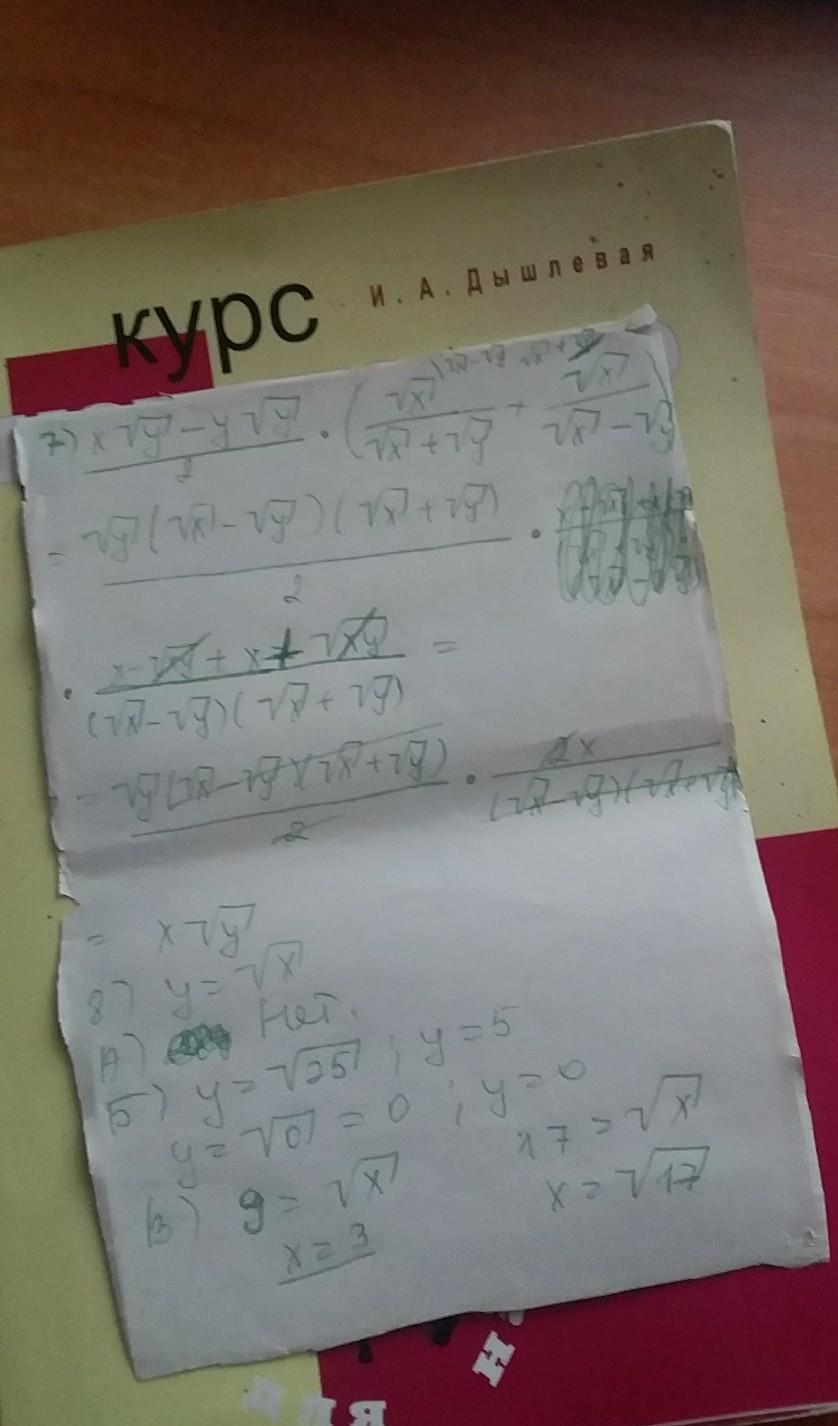 курс
И. А. Дышлевая
7) (x√y - y√y)/2 · (√x/(√x + √y) + √x/(√x - √y)
= √y(√x - √y)(√x + √y)/2 ·
· (x - √xy + x + √xy)/((√x - √y)(√x + √y)) =
= √y(√x - √y)(√x + √y)/2 · 2x/((√x - √y)(√x + √y)
= x√y
8) y = √x
А) Нет.
Б) y = √25 ; y = 5
y = √0 = 0 ; y = 0
В) 9 = √x 17 = √x
x = 3 x = √17